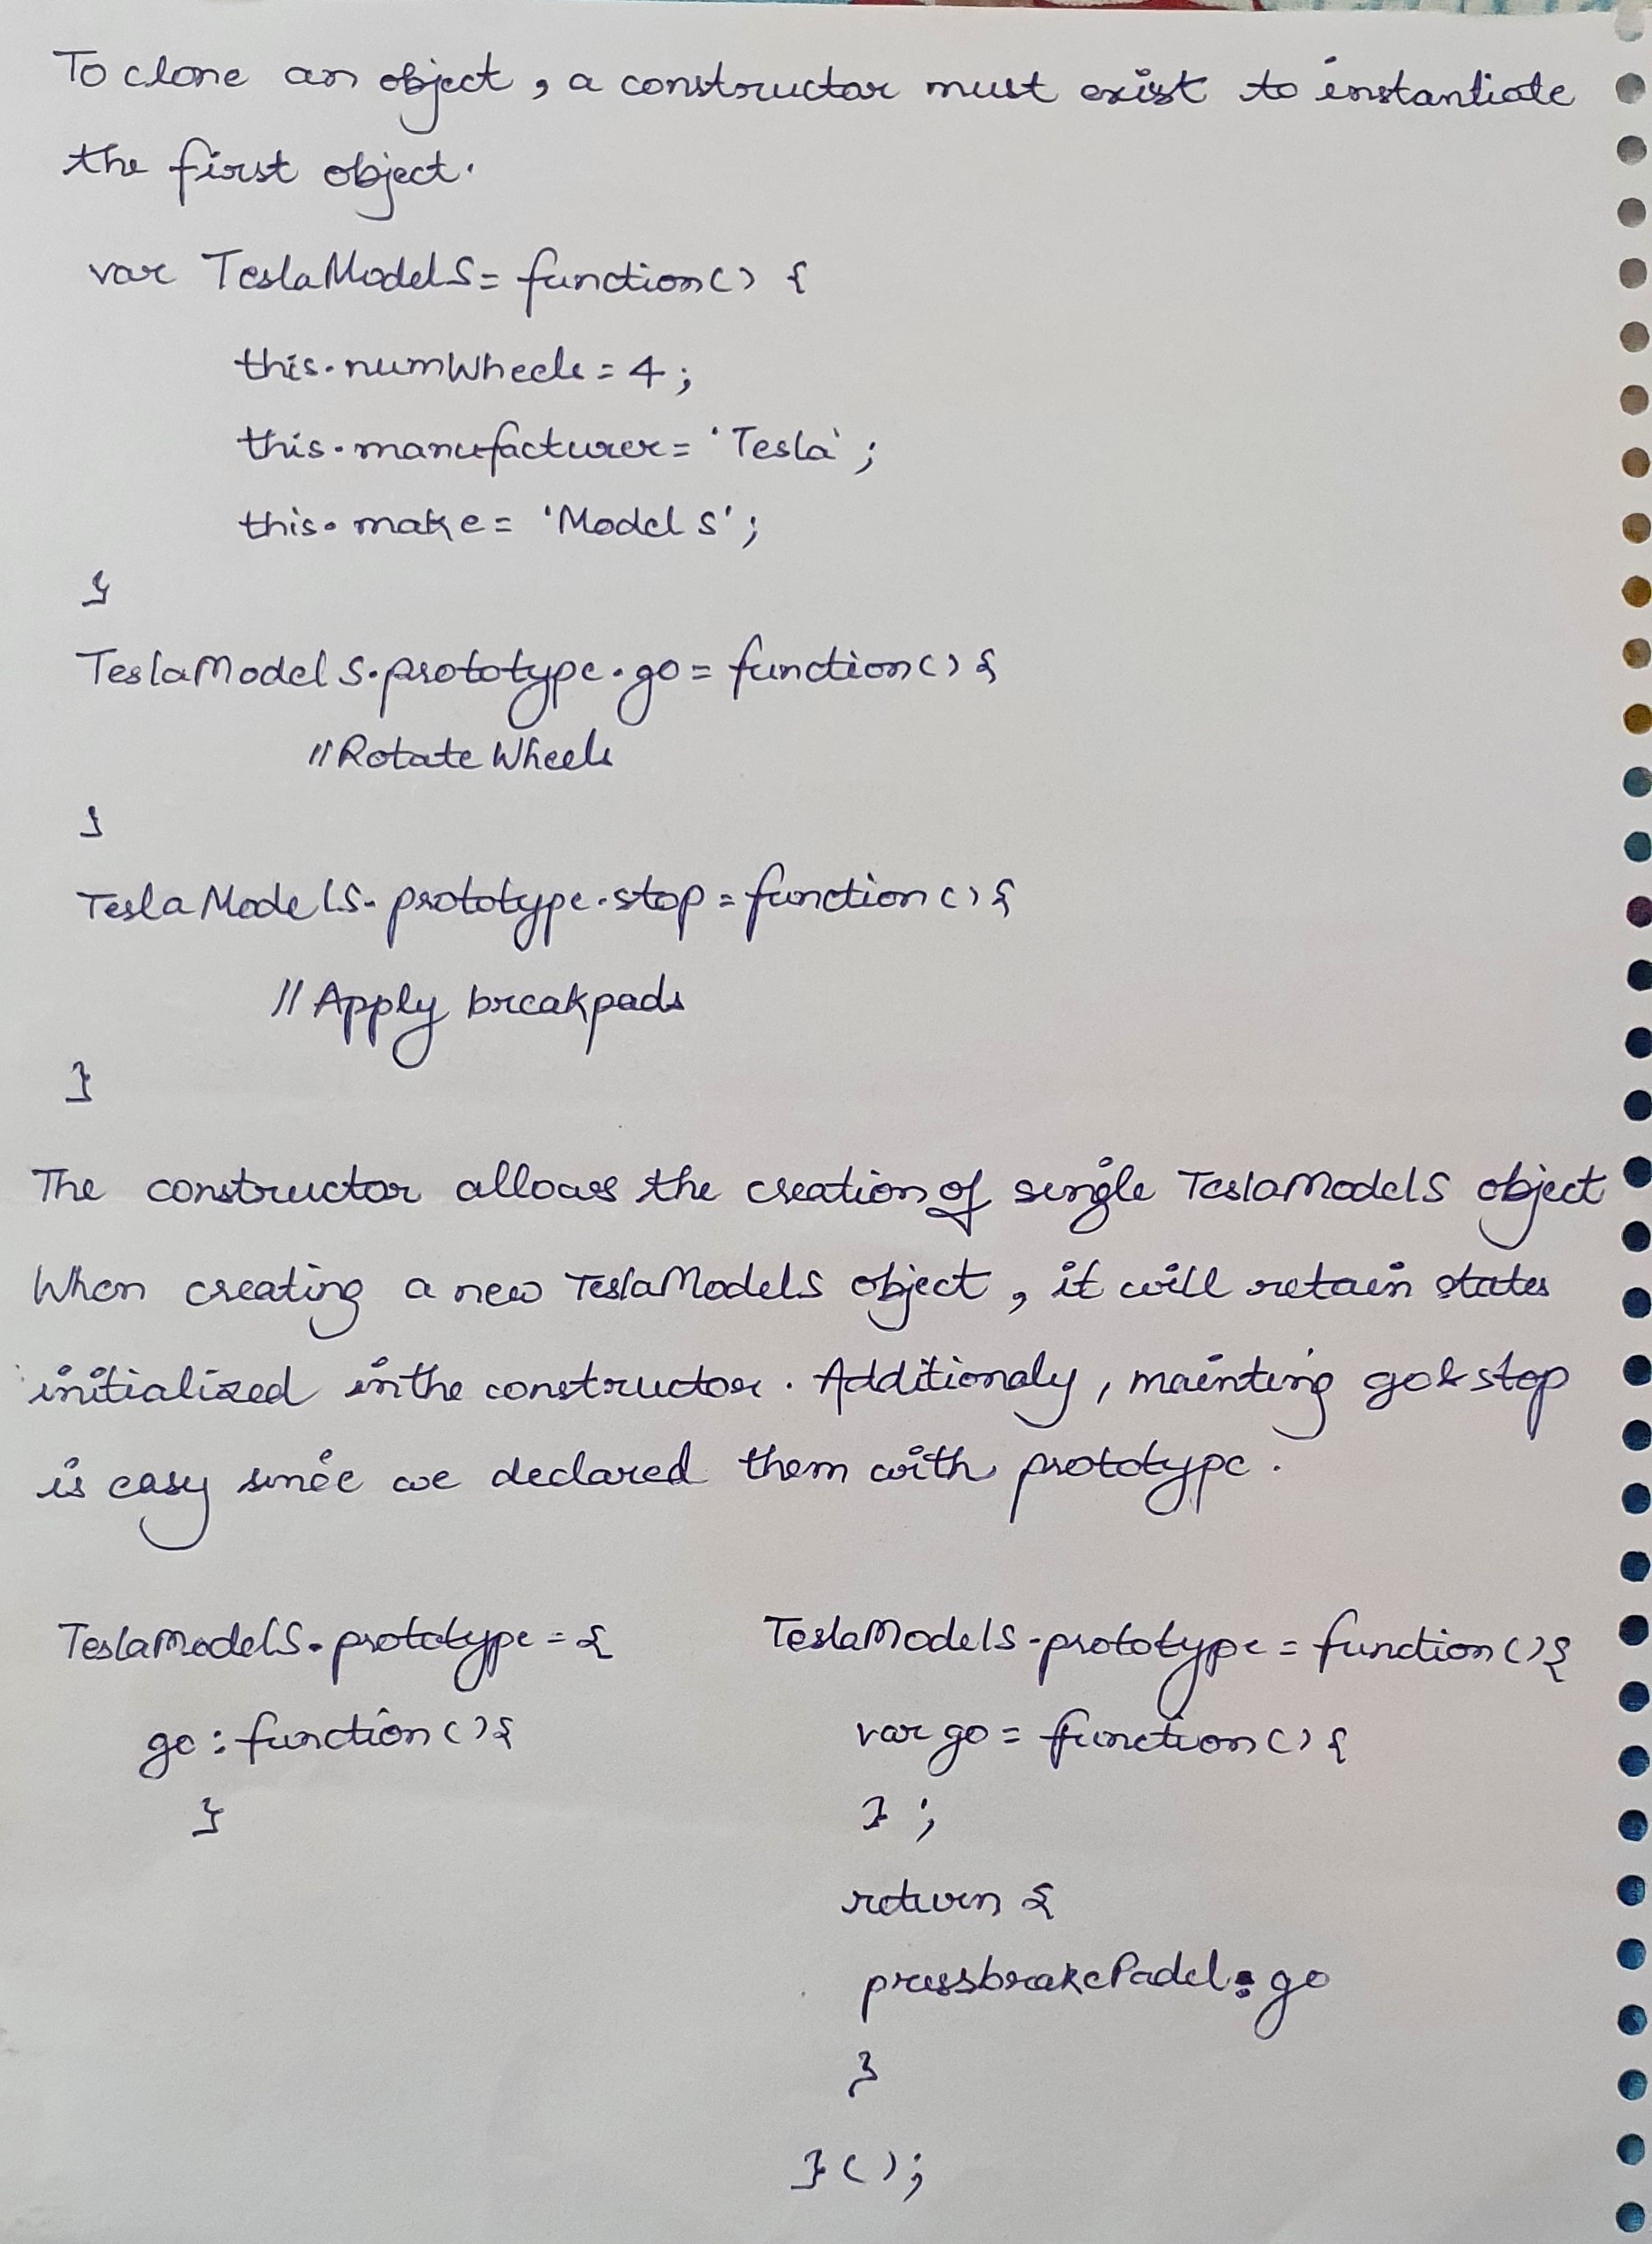 To clone an object, a constructor must exist to instantiate
the first object.
var TeslaModelS = function() {
this.numWheels = 4;
this.manufacturer = 'Tesla';
this.make = 'Model S';
}
TeslaModelS.prototype.go = function() {
//Rotate Wheels
}
TeslaModelS.prototype.stop = function() {
//Apply breakpads
}
The constructor allows the creation of single TeslaModelS object
When creating a new TeslaModelS object, it will retain states
initialized in the constructor. Additionaly, mainting go & stop
is easy since we declared them with prototype.
TeslaModelS.prototype = {
go : function() {
}
TeslaModelS.prototype = function() {
var go = function() {
};
return {
pressbrakePadel: go
}
}();